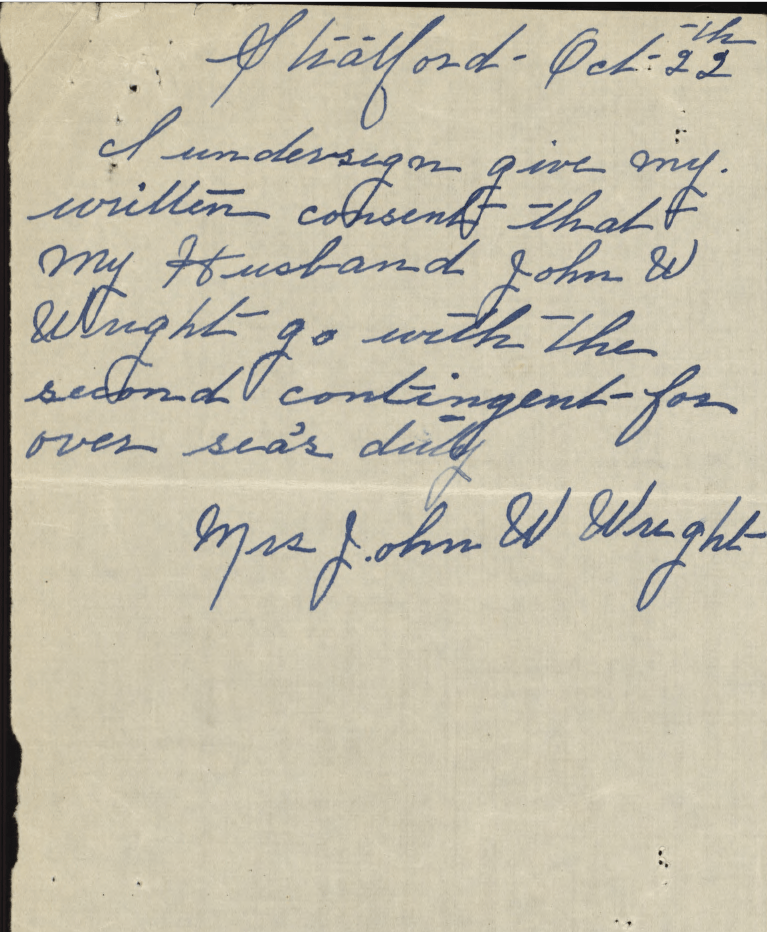 Stratford - Oct. 22th
I undersign give my.
written consent that
my Husband John W
Wright go with the
second contingent for
over sea's duty
Mrs John W Wright